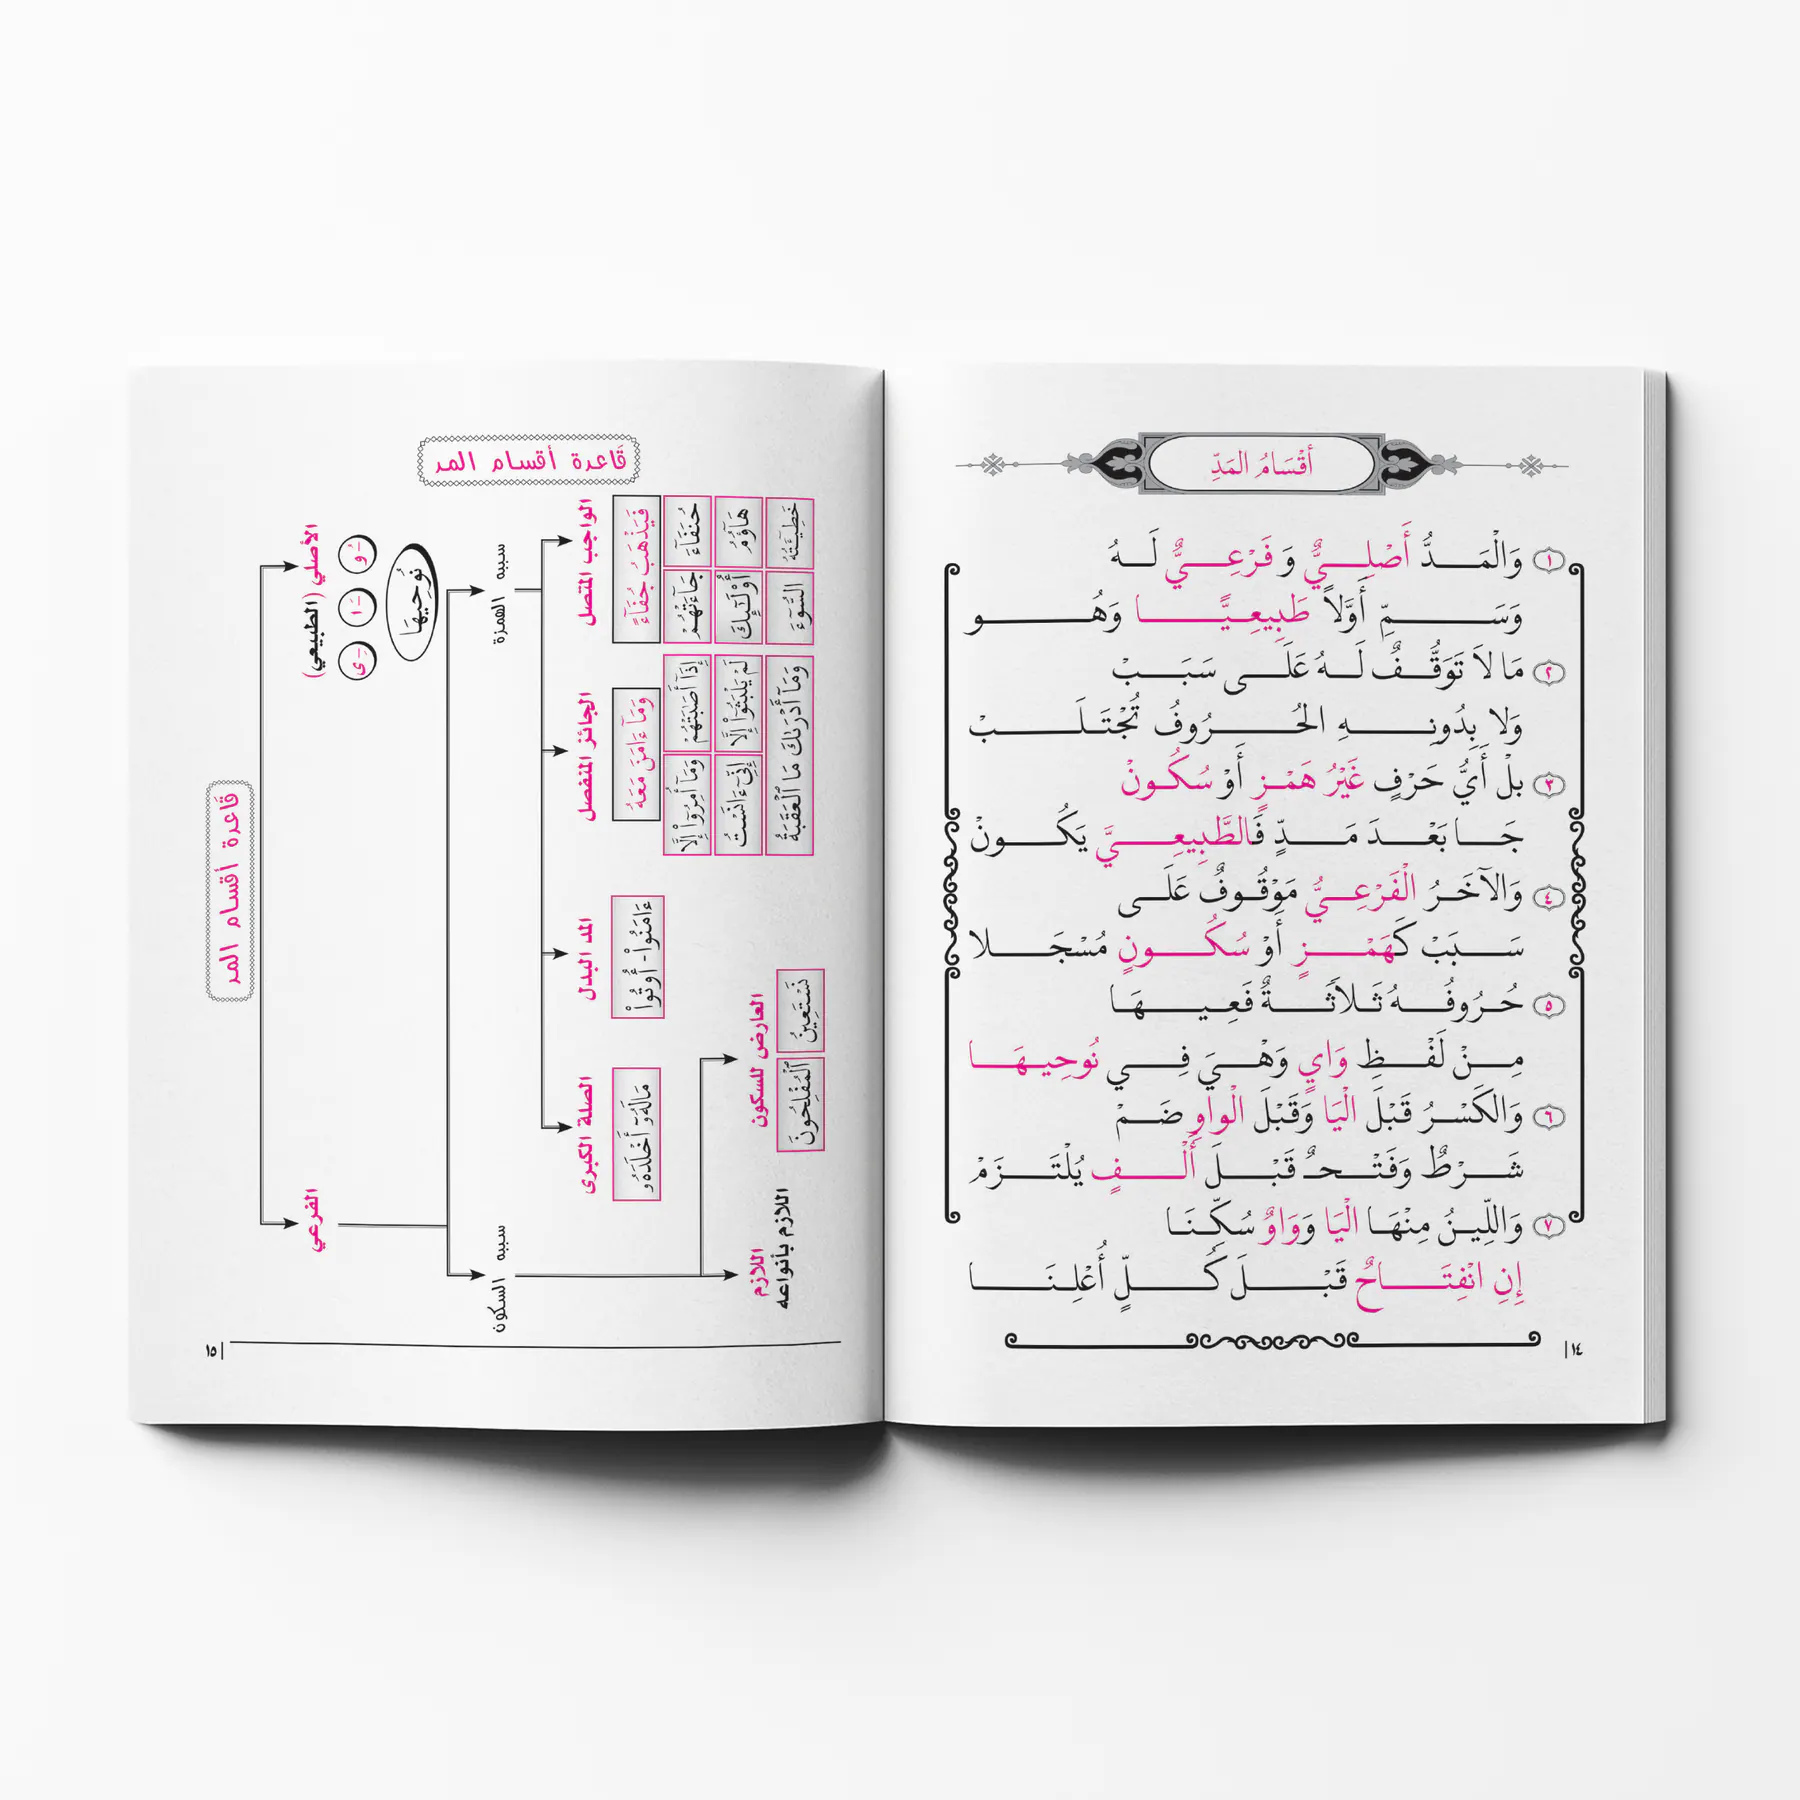 أَقْسَامُ المَدِّ
١ وَالْمَدُّ أَصْلِيٌّ وَ فَرْعِيٌّ لَهُ
وَسَمِّ أَوَّلاً طَبِيعِيًّا وَهُو
٢ مَا لاَ تَوَقُّفٌ لَهُ عَلَى سَبَبْ
وَلا بِدُونِهِ الحُرُوفُ تُجْتَلَبْ
٣ بلْ أَيُّ حَرْفٍ غَيْرُ هَمْزٍ أَوْ سُكُونْ
جَا بَعْدَ مَدٍّ فَالطَّبِيعِيَّ يَكُونْ
٤ وَالآخَرُ الْفَرْعِيُّ مَوْقُوفٌ عَلَى
سَبَبْ كَهَمْزٍ أَوْ سُكُونٍ مُسْجَلا
٥ حُرُوفُهُ ثَلاَثَةٌ فَعِيهَا
مِنْ لَفْظِ وَايٍ وَهْيَ فِي نُوحِيهَا
٦ وَالكَسْرُ قَبْلَ الْيَا وَقَبْلَ الْواوِ ضَمْ
شَرْطٌ وَفَتْحٌ قَبْلَ أَلْفٍ يُلْتَزَمْ
٧ وَاللِّينُ مِنْهَا الْيَا وَوَاوٌ سُكِّنَا
إِنِ انْفِتَاحٌ قَبْلَ كُلٍّ أُعْلِنَا
١٤
قَاعدة أقسام المد
قَاعدة أقسام المد
الأصلي (الطبيعي)
ـُ و
ـَ ا
ـِ ى
نُوحِيهَا
الفرعي
سببه الهمزة
سببه السكون
الواجب المتصل
فَيَذْهَبُ جُفَآءً
حُنَفَآءَ
جَآءَتْهُمْ
هَآؤُمُ
أُوْلَٰٓئِكَ
خَطِيٓـَٔتُهُ
السُّوٓءَ
الجائز المنفصل
وَمَآ ءَامَنَ مَعَهُ
إِذَآ أَصَٰبَتْهُمْ
وَمَآ أُمِرُوٓاْ إِلَّا
لَمْ يَلْبَثُوٓاْ إِلَّا
إِنِّيٓ ءَانَسْتُ
وَمَآ أَدْرَىٰكَ مَا الْعَقَبَةُ
المد البدل
ءَامَنُواْ - أُوتُواْ
الصلة الكبرى
مَالَهُۥٓ أَخْلَدَهُۥ
العارض للسكون
نَسْتَعِينُ
الْمُفْلِحُونَ
اللازم
اللازم بأنواعه
١٥